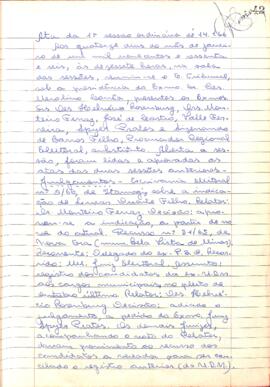 Ata da 1ª sessão ordinária de 14.1.66
Aos quatorze dias do mês de janei-
ro de mil novecentos e sessenta
e seis, às dezessete horas, na sala
das sessões, reuniu-se o Tribunal,
sob a presidência do exmo sr. Des.
presentes os exmos
srs. Des. Helvécio Rosenburg, Drs. Mon-
teiro Ferraz, José de Castro, Valle Fer-
reira, Prates e
de Barros Filho, Procurador Regional
Eleitoral, substituto. Aberta a ses-
são, foram lidas e aprovadas as
atas das duas sessões anteriores.
Julgamentos: Eleitoral
nº de sobre a indica-
ção de Duarte Filho. Relator:
Dr. Monteiro Ferraz. Decisão: apro-
varam a indicação, a partir da no-
va do atual. Recurso nº de
Nova Era (
Recorrente: Delegado do ex. P.S.D. Recor-
rido: MM. Juiz Eleitoral, assunto:
registro dos candidatos da ex-UDN
aos cargos municipais, no pleito de
outubro último. Relator: Des. Hel-
vécio Rosenburg. Decisão: adiado o
julgamento, a pedido do Exmo. Juiz
Prates. Os demais Juízes,
acompanhando o voto do Relator,
deram provimento ao recurso dos
candidatos a vereador para ser can-
celado o registro anterior (da U.D.N.)